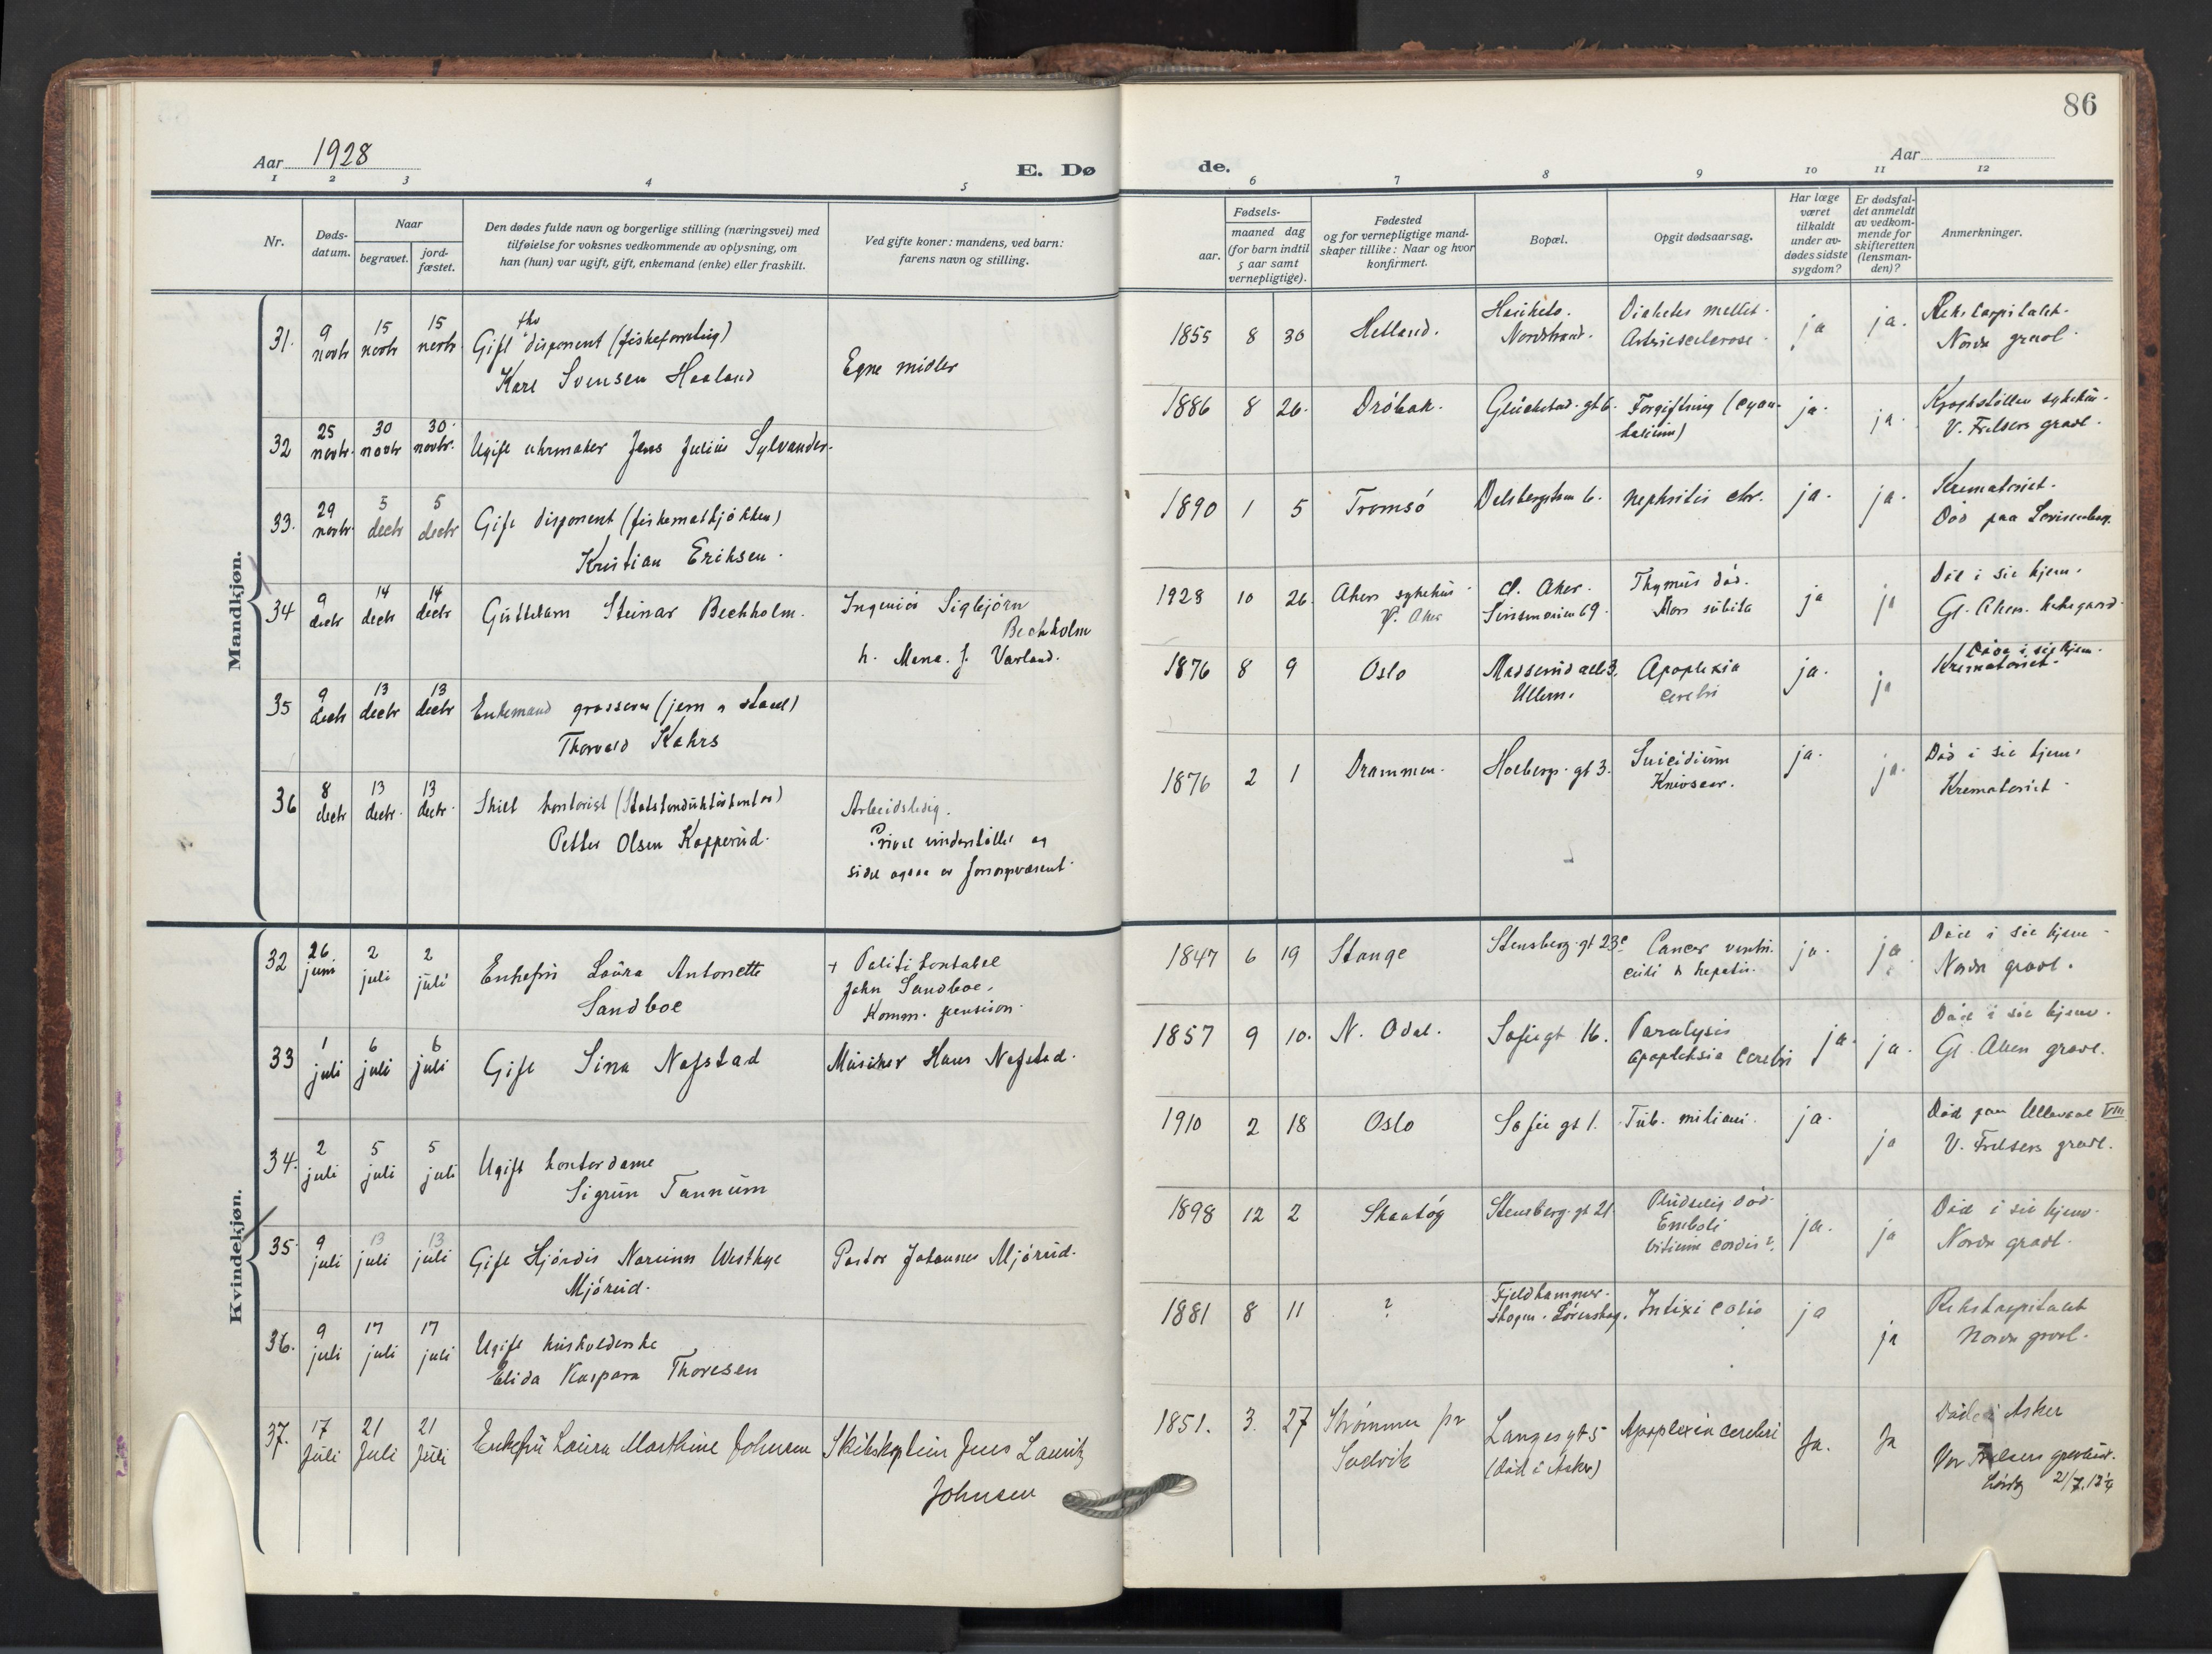 86
Aar 1928
E. Dø
de.
Aar
1 2 3 4 5 6 7 8 9 10 11 12
Nr.
Døds-
datum.
Naar
begravet.
jord-
fæstet.
Den dødes fulde navn og borgerlige stilling (næringsvei) med
tilføielse for voksnes vedkommende av oplysning, om
han (hun) var ugift, gift, enkemand (enke) eller fraskilt.
Ved gifte koner: mandens, ved barn:
farens navn og stilling.
Fødsels-
aar.
maaned dag
(for barn indtil
5 aar samt
vernepligtige).
Fødested
og for vernepligtige mand-
skaper tillike: Naar og hvor
konfirmert.
Bopæl.
Opgit dødsaarsag.
Har læge
været
tilkaldt
under av-
dødes sidste
sygdom?
Er dødsfal-
det anmeldt
av vedkom-
mende for
skifteretten
(lensman-
den)?
Anmerkninger.
Mandkjøn.
31. 9 novbr 15 novbr 15 novbr. Gift fhv disponent (fiskeforretnig)
Karl Svensen Haaland
Egne midler
1855 8 30 Hetland.
Nordstrand.
Diabetes mellit.
Arteriesclerose.
ja ja. Rikshospitalet.
Nordre gravl.
32 25 novbr. 30 novbr 30 novbr. Ugift uhrmaker Jens Julius Sylvander.
1886 8 26. Drøbak. Glückstad. gt 6. Forgiftning (Cyan-
kalium)
ja. ja. Krohgstøtten sykehus.
V. Frelsers gravl.
33. 29 novbr. 5 decbr 5 decbr Gift disponent (fiskematkjøkken)
Kristian Eriksen.
1890 1 5 Tromsø nephritis chr. ja. ja. Krematoriet.
Død paa Lovisenberg.
34 9 decbr 14 decbr 14 decbr Guttebarn Steinar Bechholm.
Ingeniør Sigbjørn
Bechholm
h. Mana. J. Varland.
1928 10 26. Akers sykehus
V. Aker
Ø. Aker.
Sinsenveien 69.
Thymus død.
Mors subita
ja ja Død i sit hjem.
Gl. Akers kirkegaard.
35 9 decbr 13 decbr 13 decbr Enkemand grosserer (jern & staal)
Thorvald Kahrs
1876 8 9 Oslo
Ullern.
Apoplexia
Cerebri
ja. ja Døde i sit hjem.
Krematoriet.
36 8 decbr 13 decbr. 13 decbr. Skilt kontorist (Statskonduktørkontor)
Petter Olsen Kopperud.
Arbeidsledig.
Privat understøttet og
1876 2 1 Drammen. Holbergs gt 3. Suicidium
Knivsaar.
ja. ja. Død i sit hjem.
Krematoriet.
Kvindekjøn.
32 26. juni 2 juli 2 juli Enkefru Laura Antonette
Sandboe
+ Politikonstabel
John Sandboe.
Komm. pension.
1847 6 19 Stange Stensberg. gt 23c Cancer ventri-
culi & hepatis.
ja. ja Død i sit hjem.
Nordre gravl.
33 1 juli 6 juli 6 juli Gift Sina Nafstad
Musiker Hans Nafstad.
1857 9 10. N. Odal. Sofiegt 16. Paralysis
apopleksia Cerebri
ja. ja. Død i sit hjem.
Gl. Akers gravl.
34. 2 juli 5 juli 5 juli Ugift kontordame
Sigrun Tannum
1910 2 18 Oslo Sofie gt 1. Tub. miliari. ja. ja Død paa Ullevaal VIII
V. Frelsers gravl.
35. 9 juli 13 juli 13 juli Gift Hjørdis Narumn Westbye
Mjørud.
Pastor Johannes Mjørud.
1898 12 2 Skaatøy Stensberg. gt 21. Pludselig død.
Emboli
Vitium cordis?
ja. ja Død i sit hjem.
Nordre gravl.
36. 9 juli 17 juli 17 juli Ugift husholderske
Elida Kaspara Thoresen
1881 8 11 ? Fjeldhammer-
skogen. Lørenskog.
ja ja Rikshospitalet
Nordre gravl.
37. 17 Juli 21 Juli 21 Juli Enkefru Laura Marthine Johnsen
Skibskaptein Jens Lauritz
Johnsen
1851. 3. 27 Strømmen pr
Langesgt 5
(død i Asker)
Apoplexia cerebri
Ja. Ja Døde i Asker
Vor Frelsers gravlund.
Lørdg 21/7. 13¼